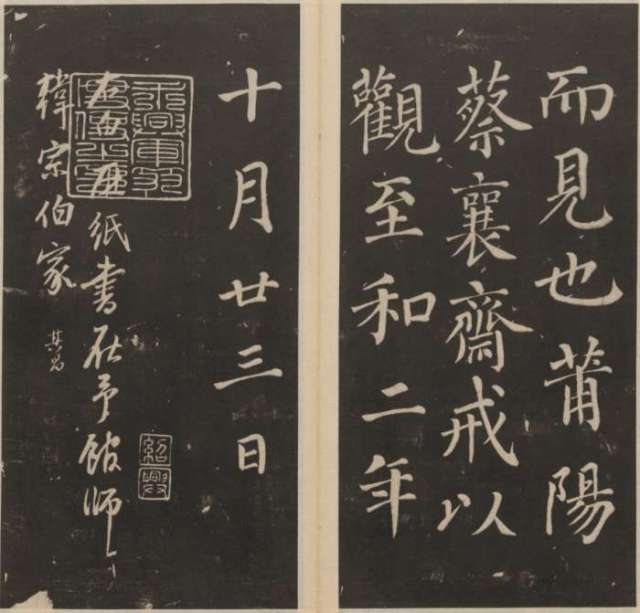 而見也莆陽
蔡襄齋戒以
觀至和二年
十月廿三日
紹興
右白麻紙書在予館師
韓宗伯家 其昌